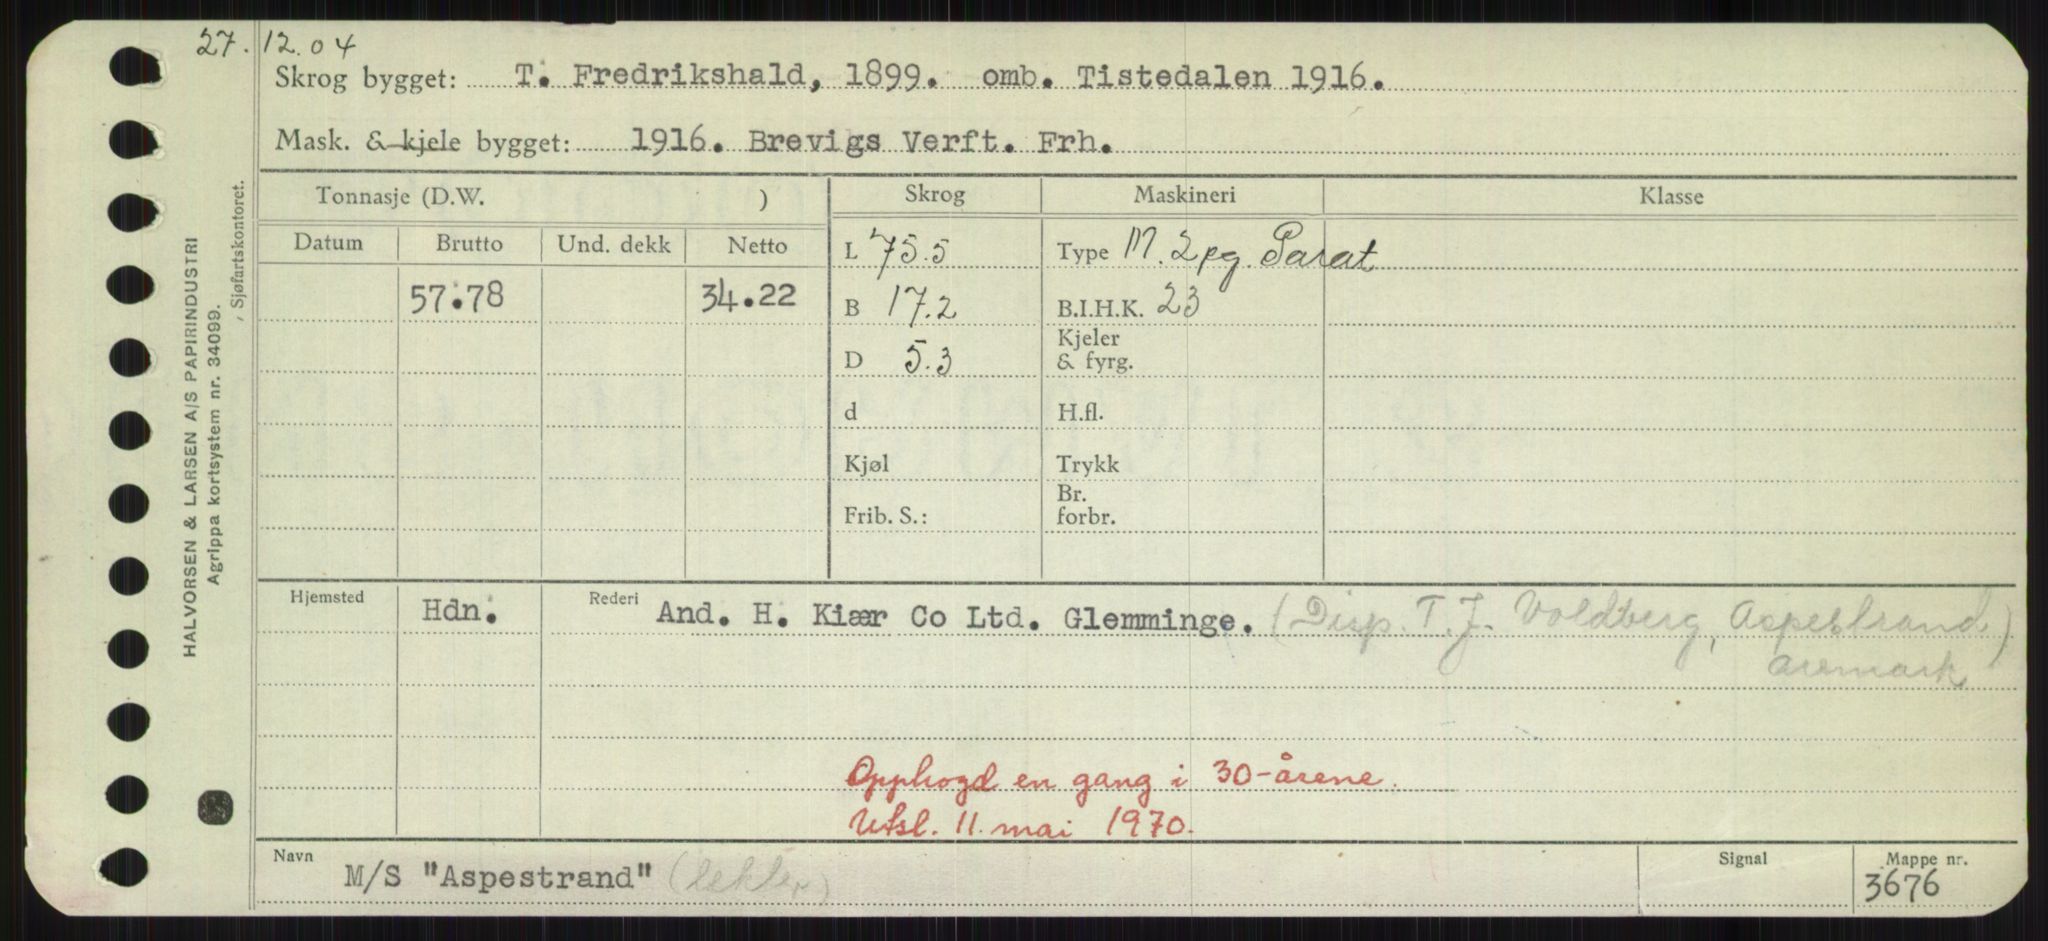 27.12.04
Skrog bygget: T. Fredrikshald, 1899. omb. Tistedalen 1916.
Mask. & kjele bygget: 1916. Brevigs Verft. Frh.
Tonnasje (D.W. ) Skrog Maskineri Klasse
Datum Brutto Und. dekk Netto
L 75.5 Type M. 2 pg. Parat
57.78 34.22 B 17.2 B.I.H.K. 23
D 5.3 Kjeler & fyrg.
d H.fl.
Kjøl Trykk
Frib. S.: Br. forbr.
Hjemsted Hdn. Rederi And. H. Kiær Co Ltd. Glemminge. (Disp. T. J. Voldberg, Aspestrand)
Aremark
Opphogd en gang i 30-årene.
Utsl. 11. mai 1970.
Navn M/S "Aspestrand" (lekter) Signal Mappe nr. 3676
HALVORSEN & LARSEN A/S PAPIRINDUSTRI
Agrippa kortsystem nr. 34099.
, Sjøfartskontoret.